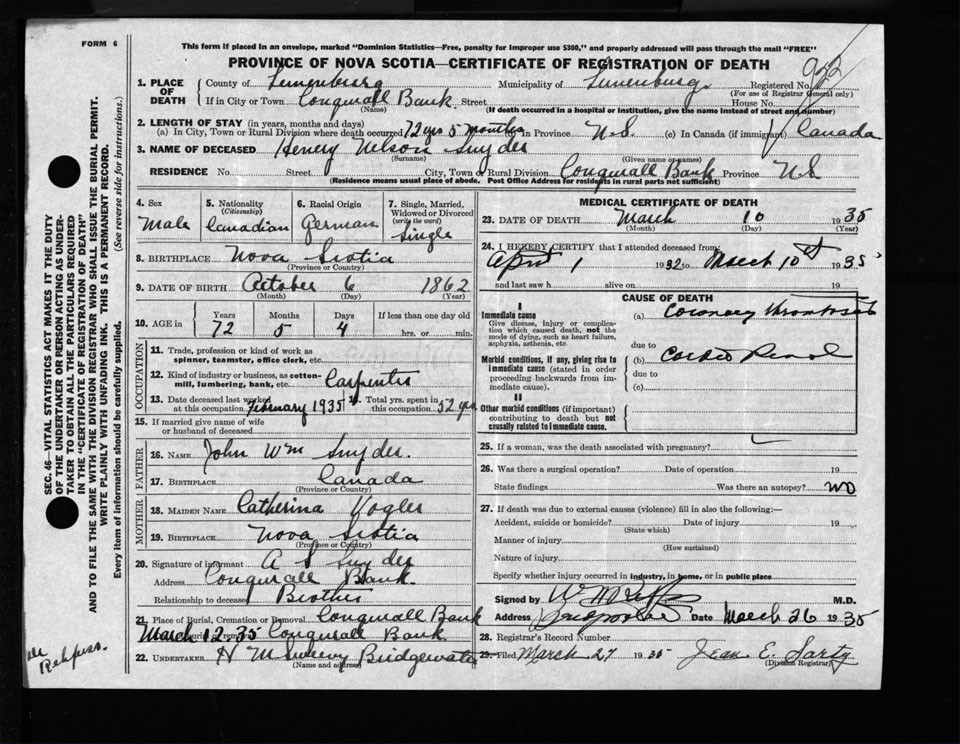 FORM 6
This form if placed in an envelope, marked "Dominion Statistics—Free, penalty for improper use $300," and properly addressed will pass through the mail "FREE"
PROVINCE OF NOVA SCOTIA—CERTIFICATE OF REGISTRATION OF DEATH
1. PLACE OF DEATH
County of Lunenburg Municipality of Lunenburg. Registered No.
(For use of Registrar General only)
If in City or Town Conquerall Bank. Street House No.
(Name) (If death occurred in a hospital or institution, give the name instead of street and number)
2. LENGTH OF STAY (in years, months and days)
(a) In City, Town or Rural Division where death occurred 72 yrs 5 months (b) in Province N.S. (c) In Canada (if immigrant) Canada
3. NAME OF DECEASED Henery Nelson Snyder
(Surname) (Given name or names)
RESIDENCE No. Street City, Town or Rural Division Conquerall Bank Province N.S
(Residence means usual place of abode. Post Office Address for residents in rural parts not sufficient)
4. Sex Male
5. Nationality (Citizenship) Canadian
6. Racial Origin German
7. Single, Married, Widowed or Divorced (write the word) Single
8. BIRTHPLACE Nova Scotia
(Province or Country)
9. DATE OF BIRTH October 6 1862
(Month) (Day) (Year)
10. AGE in Years Months Days If less than one day old
72 5 4 hrs. or min.
OCCUPATION
11. Trade, profession or kind of work as spinner, teamster, office clerk, etc.
12. Kind of industry or business, as cotton-mill, lumbering, bank, etc. Carpenter
13. Date deceased last worked at this occupation February 1935 14. Total yrs. spent in this occupation 52 yrs
15. If married give name of wife or husband of deceased
FATHER
16. NAME John Wm Snyder.
17. BIRTHPLACE Canada
(Province or Country)
MOTHER
18. MAIDEN NAME Catherina Vogler
19. BIRTHPLACE Nova Scotia
(Province or Country)
20. Signature of informant A S Snyder
Address Conquerall Bank.
Relationship to deceased Brother
21. Place of Burial, Cremation or Removal Conquerall Bank
March 12.35 Conquerall Bank.
22. UNDERTAKER H M Bridgewater
(Name and address)
MEDICAL CERTIFICATE OF DEATH
23. DATE OF DEATH March 10 1935
(Month) (Day) (Year)
24. I HEREBY CERTIFY that I attended deceased from:
April 1 1932 to March 10th 1935
and last saw h alive on 19
CAUSE OF DEATH
I
Immediate cause
Give disease, injury or complication which caused death, not the mode of dying, such as heart failure, asphyxia, asthenia, etc.
(a) Coronary Thrombosis
due to
Morbid conditions, if any, giving rise to immediate cause (stated in order proceeding backwards from immediate cause).
(b) Cardio Renal
due to
(c)
II
Other morbid conditions (if important) contributing to death but not causally related to immediate cause.
25. If a woman, was the death associated with pregnancy?
26. Was there a surgical operation? Date of operation 19
State findings Was there an autopsy? NO
27. If death was due to external causes (violence) fill in also the following:—
Accident, suicide or homicide? Date of injury 19
(State which)
Manner of injury
(How sustained)
Nature of injury
Specify whether injury occurred in industry, in home, or in public place
Signed by M.D.
Address Date March 26 1935
28. Registrar's Record Number
29. Filed March 27 1935 Jean E. Sarty
(Division Registrar)
SEC. 46—VITAL STATISTICS ACT MAKES IT THE DUTY OF THE UNDERTAKER OR PERSON ACTING AS UNDERTAKER TO OBTAIN ALL THE PARTICULARS REQUIRED IN THE "CERTIFICATE OF REGISTRATION OF DEATH" AND TO FILE THE SAME WITH THE DIVISION REGISTRAR WHO SHALL ISSUE THE BURIAL PERMIT.
WRITE PLAINLY WITH UNFADING INK. THIS IS A PERMANENT RECORD.
Every item of information should be carefully supplied. (See reverse side for instructions.)